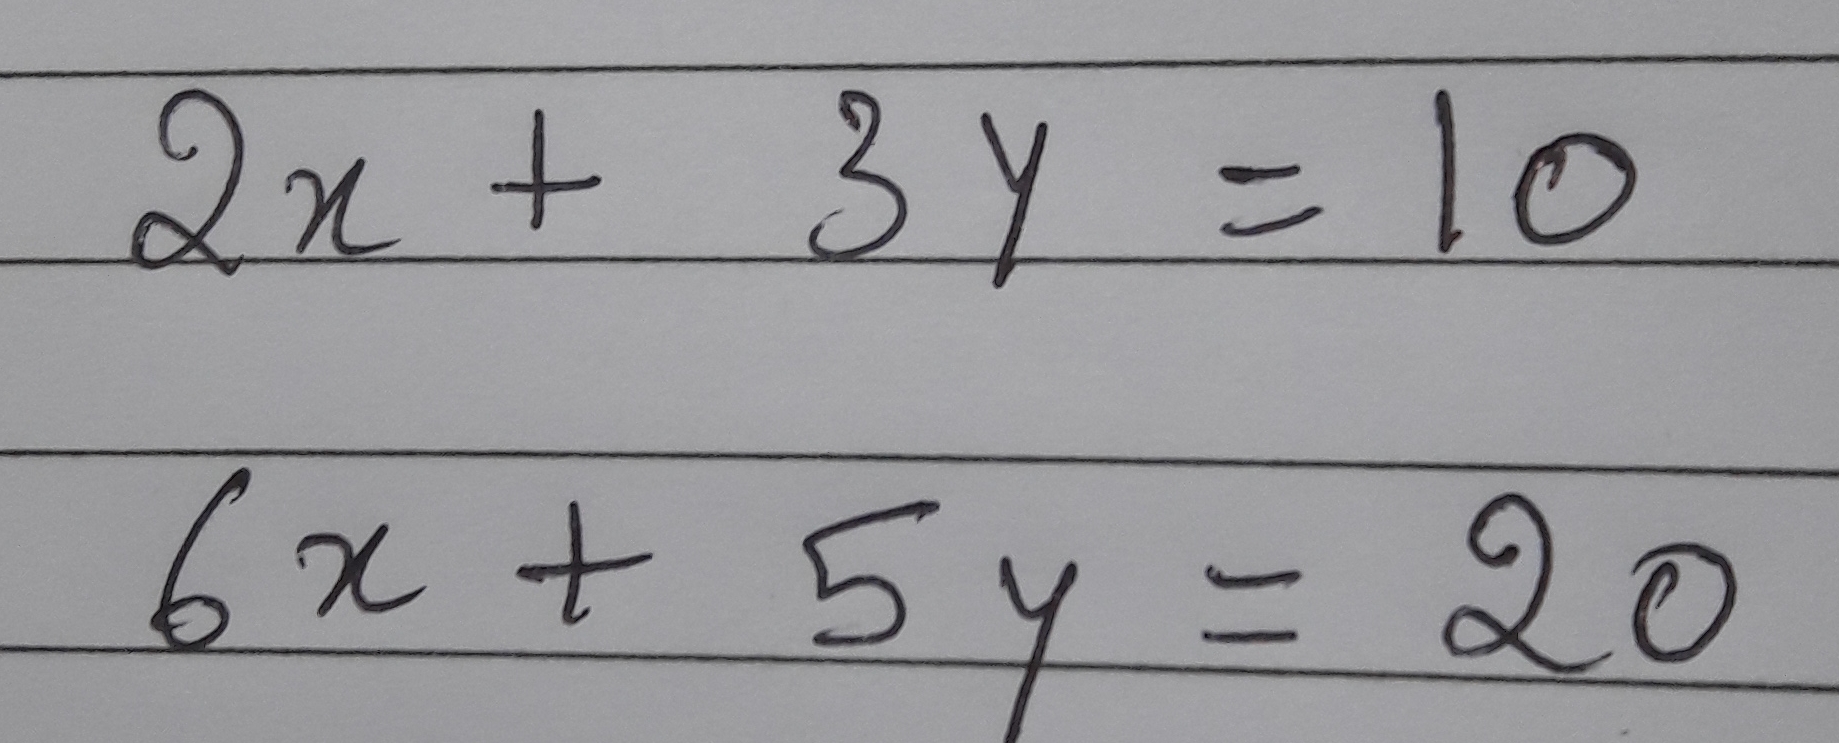 2x + 3y = 10
6x + 5y = 20